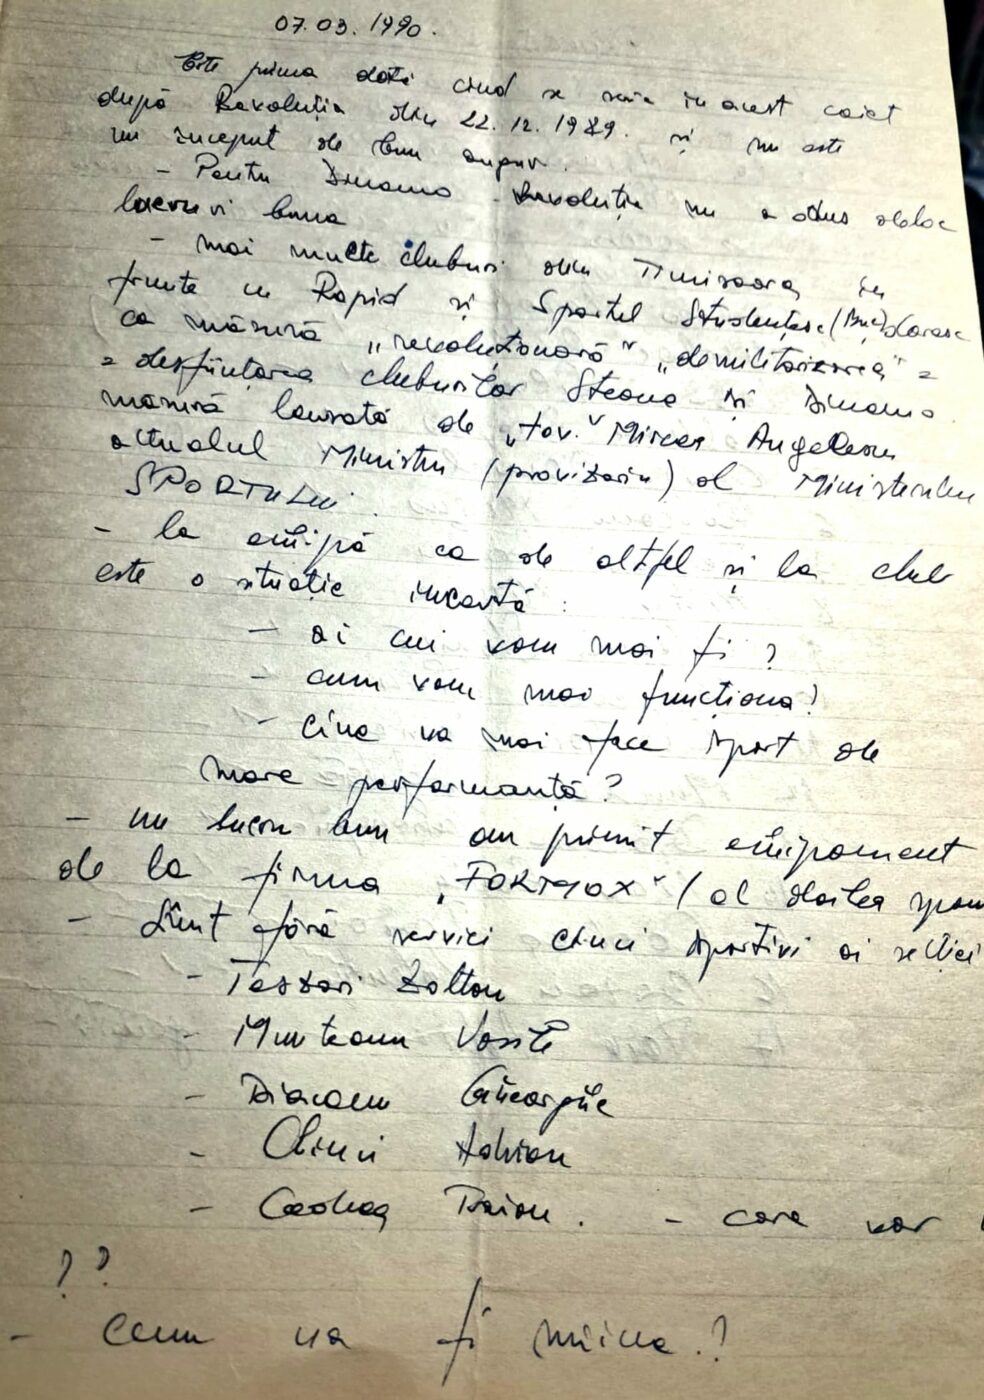 07.03.1990.
Este prima dată cînd se scrie în acest caiet
după Revoluția din 22.12.1989. și nu este
un început de bun augur.
- Pentru Dinamo Revoluția nu a adus deloc
lucruri bune
- mai multe cluburi din Timisoara, în
frunte cu Rapid și Sportul Studențesc (Buc) doresc
ca măsură „revoluționară" „demilitarizarea" =
= desființarea cluburilor Steaua și Dinamo
măsură lansată de „tov." Mircea Angelescu
actualul Ministru (provizoriu) al Ministerului
SPORTULUI.
- la echipă ca de altfel și la club
este o situație incertă:
- ai cui vom mai fi?
- cum vom mai funcționa?
- Cine va mai face sport de
mare performanță?
- un lucru bun am primit echipament
de la firma „FORMAX" (al doilea
- Sînt fără servici cinci sportivi ai secției
- Zoltan
- Munteanu Vasile
- Diaconu Gheorghe
- Adrian
- Traian. - care vor
??
- Cum va fi mîine?